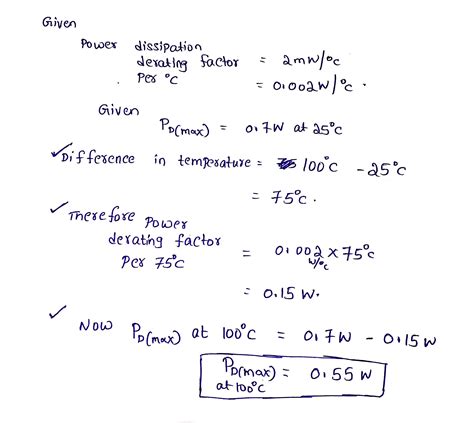 Given
Power dissipation
derating factor = 2mW/°c
Per °C = 0.002W/°c.
Given
PD(max) = 0.7W at 25°C
Difference in temperature = 100°C - 25°C
= 75°C.
Therefore Power
derating factor = 0.002 W/°C × 75°C
Per 75°C
= 0.15 W.
Now PD(max) at 100°C = 0.7W - 0.15W
PD(max) = 0.55 W
at 100°C